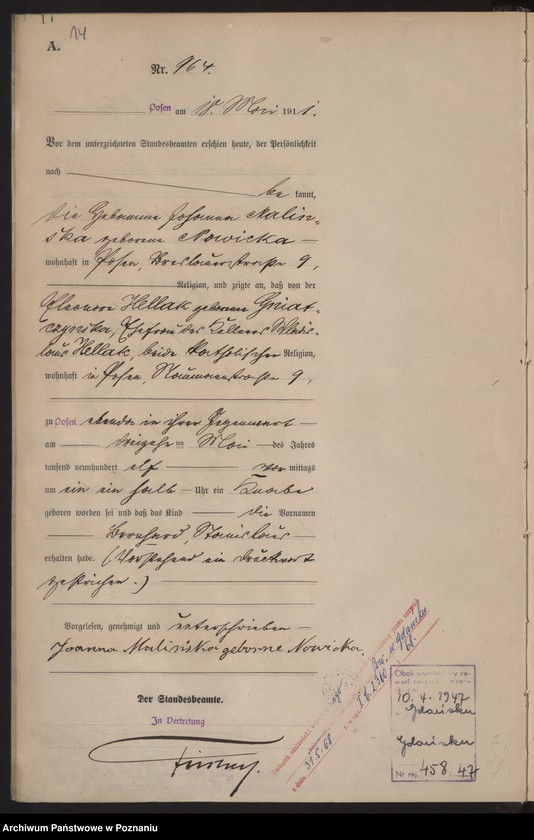 14
A.
Nr. 964.
Posen am 15. Mai 1911.
Vor dem unterzeichneten Standesbeamten erschien heute, der Persönlichkeit
nach
be kannt,
die Hebamme Johanna Malin-
ska geborene Nowicka
wohnhaft in Posen, Breslauerstraße 9,
Religion, und zeigte an, daß von der
Eleonore Hellak geborenen Gniat-
czynska, Ehefrau des Kellners Wladis-
laus Hellak, beide katholischer Religion,
wohnhaft in Posen, Naumannstraße 9,
zu Posen ebenda in ihrer Gegenwart
am dreizehnten Mai des Jahres
tausend neunhundert elf vor mittags
um ein ein halb Uhr ein Knabe
geboren worden sei und daß das Kind die Vornamen
Bernhard, Stanislaus
erhalten habe. (Vorstehend ein Druckwort
gestrichen.)
Vorgelesen, genehmigt und unterschrieben
Joanna Malińska geborne Nowicka
Der Standesbeamte.
In Vertretung
31.5.61.
10.4.1947
Gdańsku
Gdańsku
Nr rej. 458/47
Archiwum Państwowe w Poznaniu
szukajwarchiwach.pl